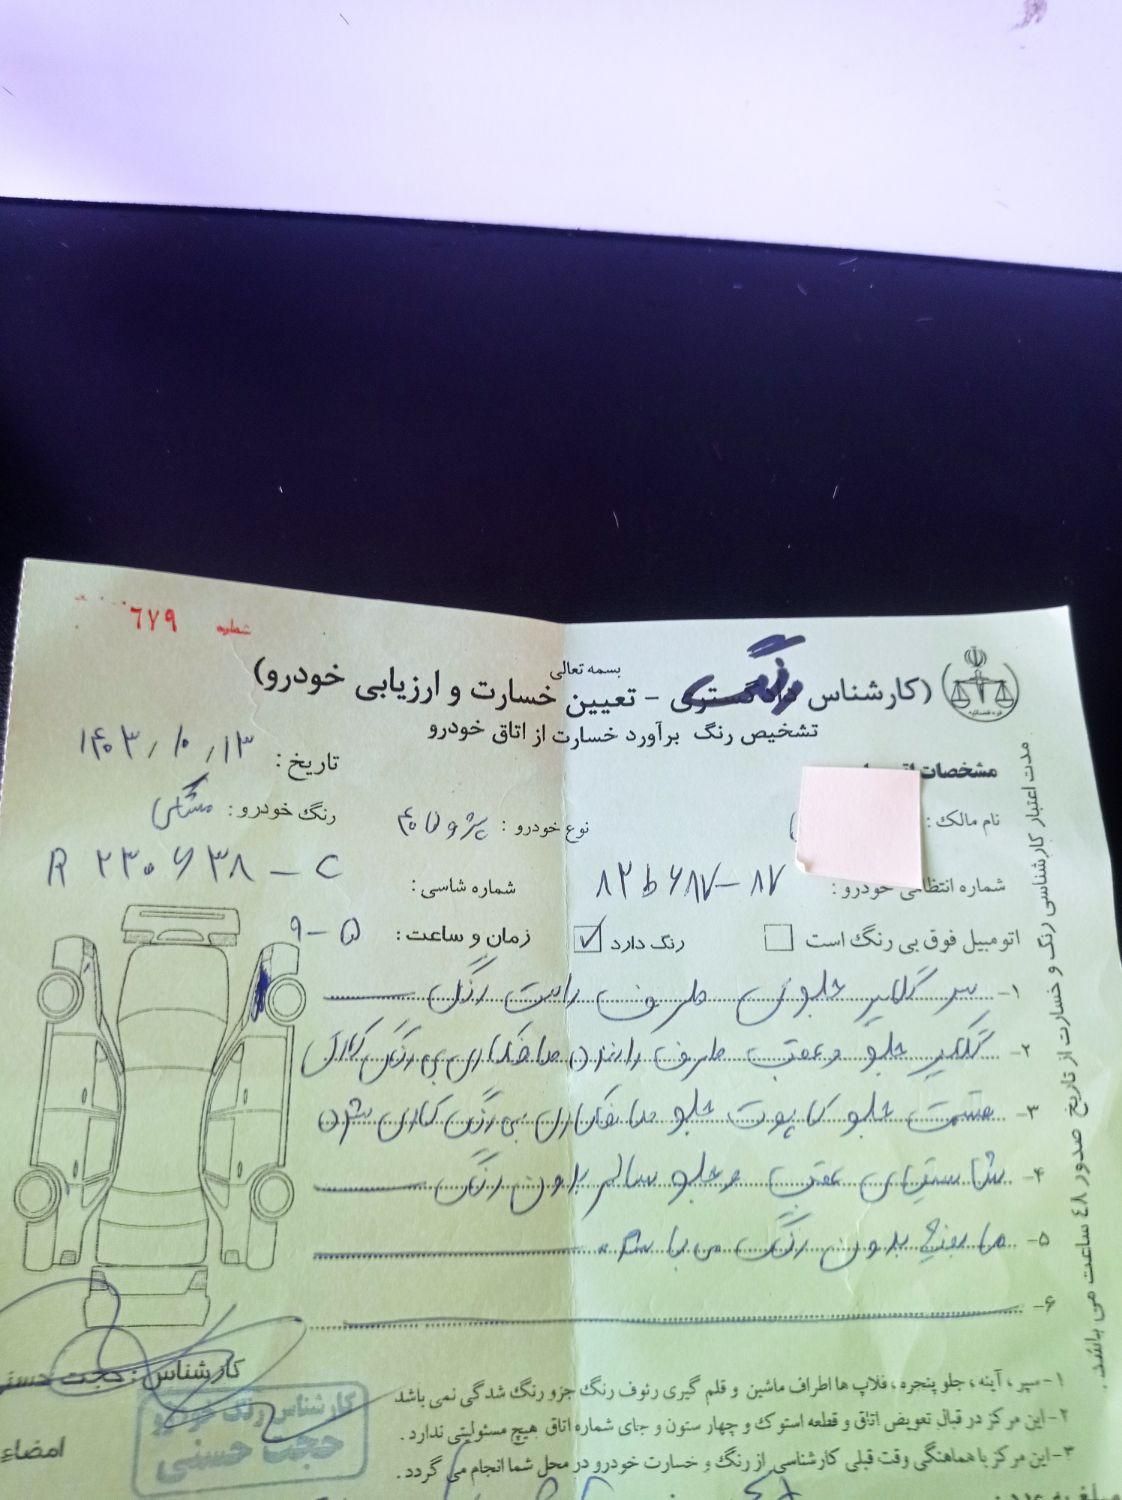 شماره ٦٧٩
بسمه تعالی
(کارشناس رنگ - تعیین خسارت و ارزیابی خودرو)
تشخیص رنگ برآورد خسارت از اتاق خودرو
تاریخ : ۱۴۰۳/۱۰/۱۳
مشخصات
نام مالک :
نوع خودرو : پژو ۴۰۵
رنگ خودرو : مشکی
شماره انتظامی خودرو : ۸۲ ط ۶۸۷-۸۷
شماره شاسی : R ۲۳۰۶۳۸ - C
اتومبیل فوق بی رنگ است
رنگ دارد ✓
زمان و ساعت : ۹-۵
۱- سر گلگیر جلوی طرف راست رنگ
۲- گلگیر جلو و عقب طرف راننده صافکاری بی رنگ کاری
۳- قسمت جلو کاپوت جلو صافکاری بی رنگ کاری شده
۴- شاستی های عقب و جلو سالم بدون رنگ
۵- مابقی بدون رنگ می باشد.
۶-
کارشناس : حجت حسنی
کارشناس رنگ خودرو
حجت حسنی
امضاء
۱- سپر ، آینه ، جلو پنجره ، فلاپ ها اطراف ماشین و قلم گیری رئوف رنگ جزو رنگ شدگی نمی باشد
۲- این مرکز در قبال تعویض اتاق و قطعه استوک و چهار ستون و جای شماره اتاق هیچ مسئولیتی ندارد .
۳- این مرکز با هماهنگی وقت قبلی کارشناسی از رنگ و خسارت خودرو در محل شما انجام می گردد .
مدت اعتبار کارشناسی رنگ و خسارت از تاریخ صدور ٤٨ ساعت می باشد .